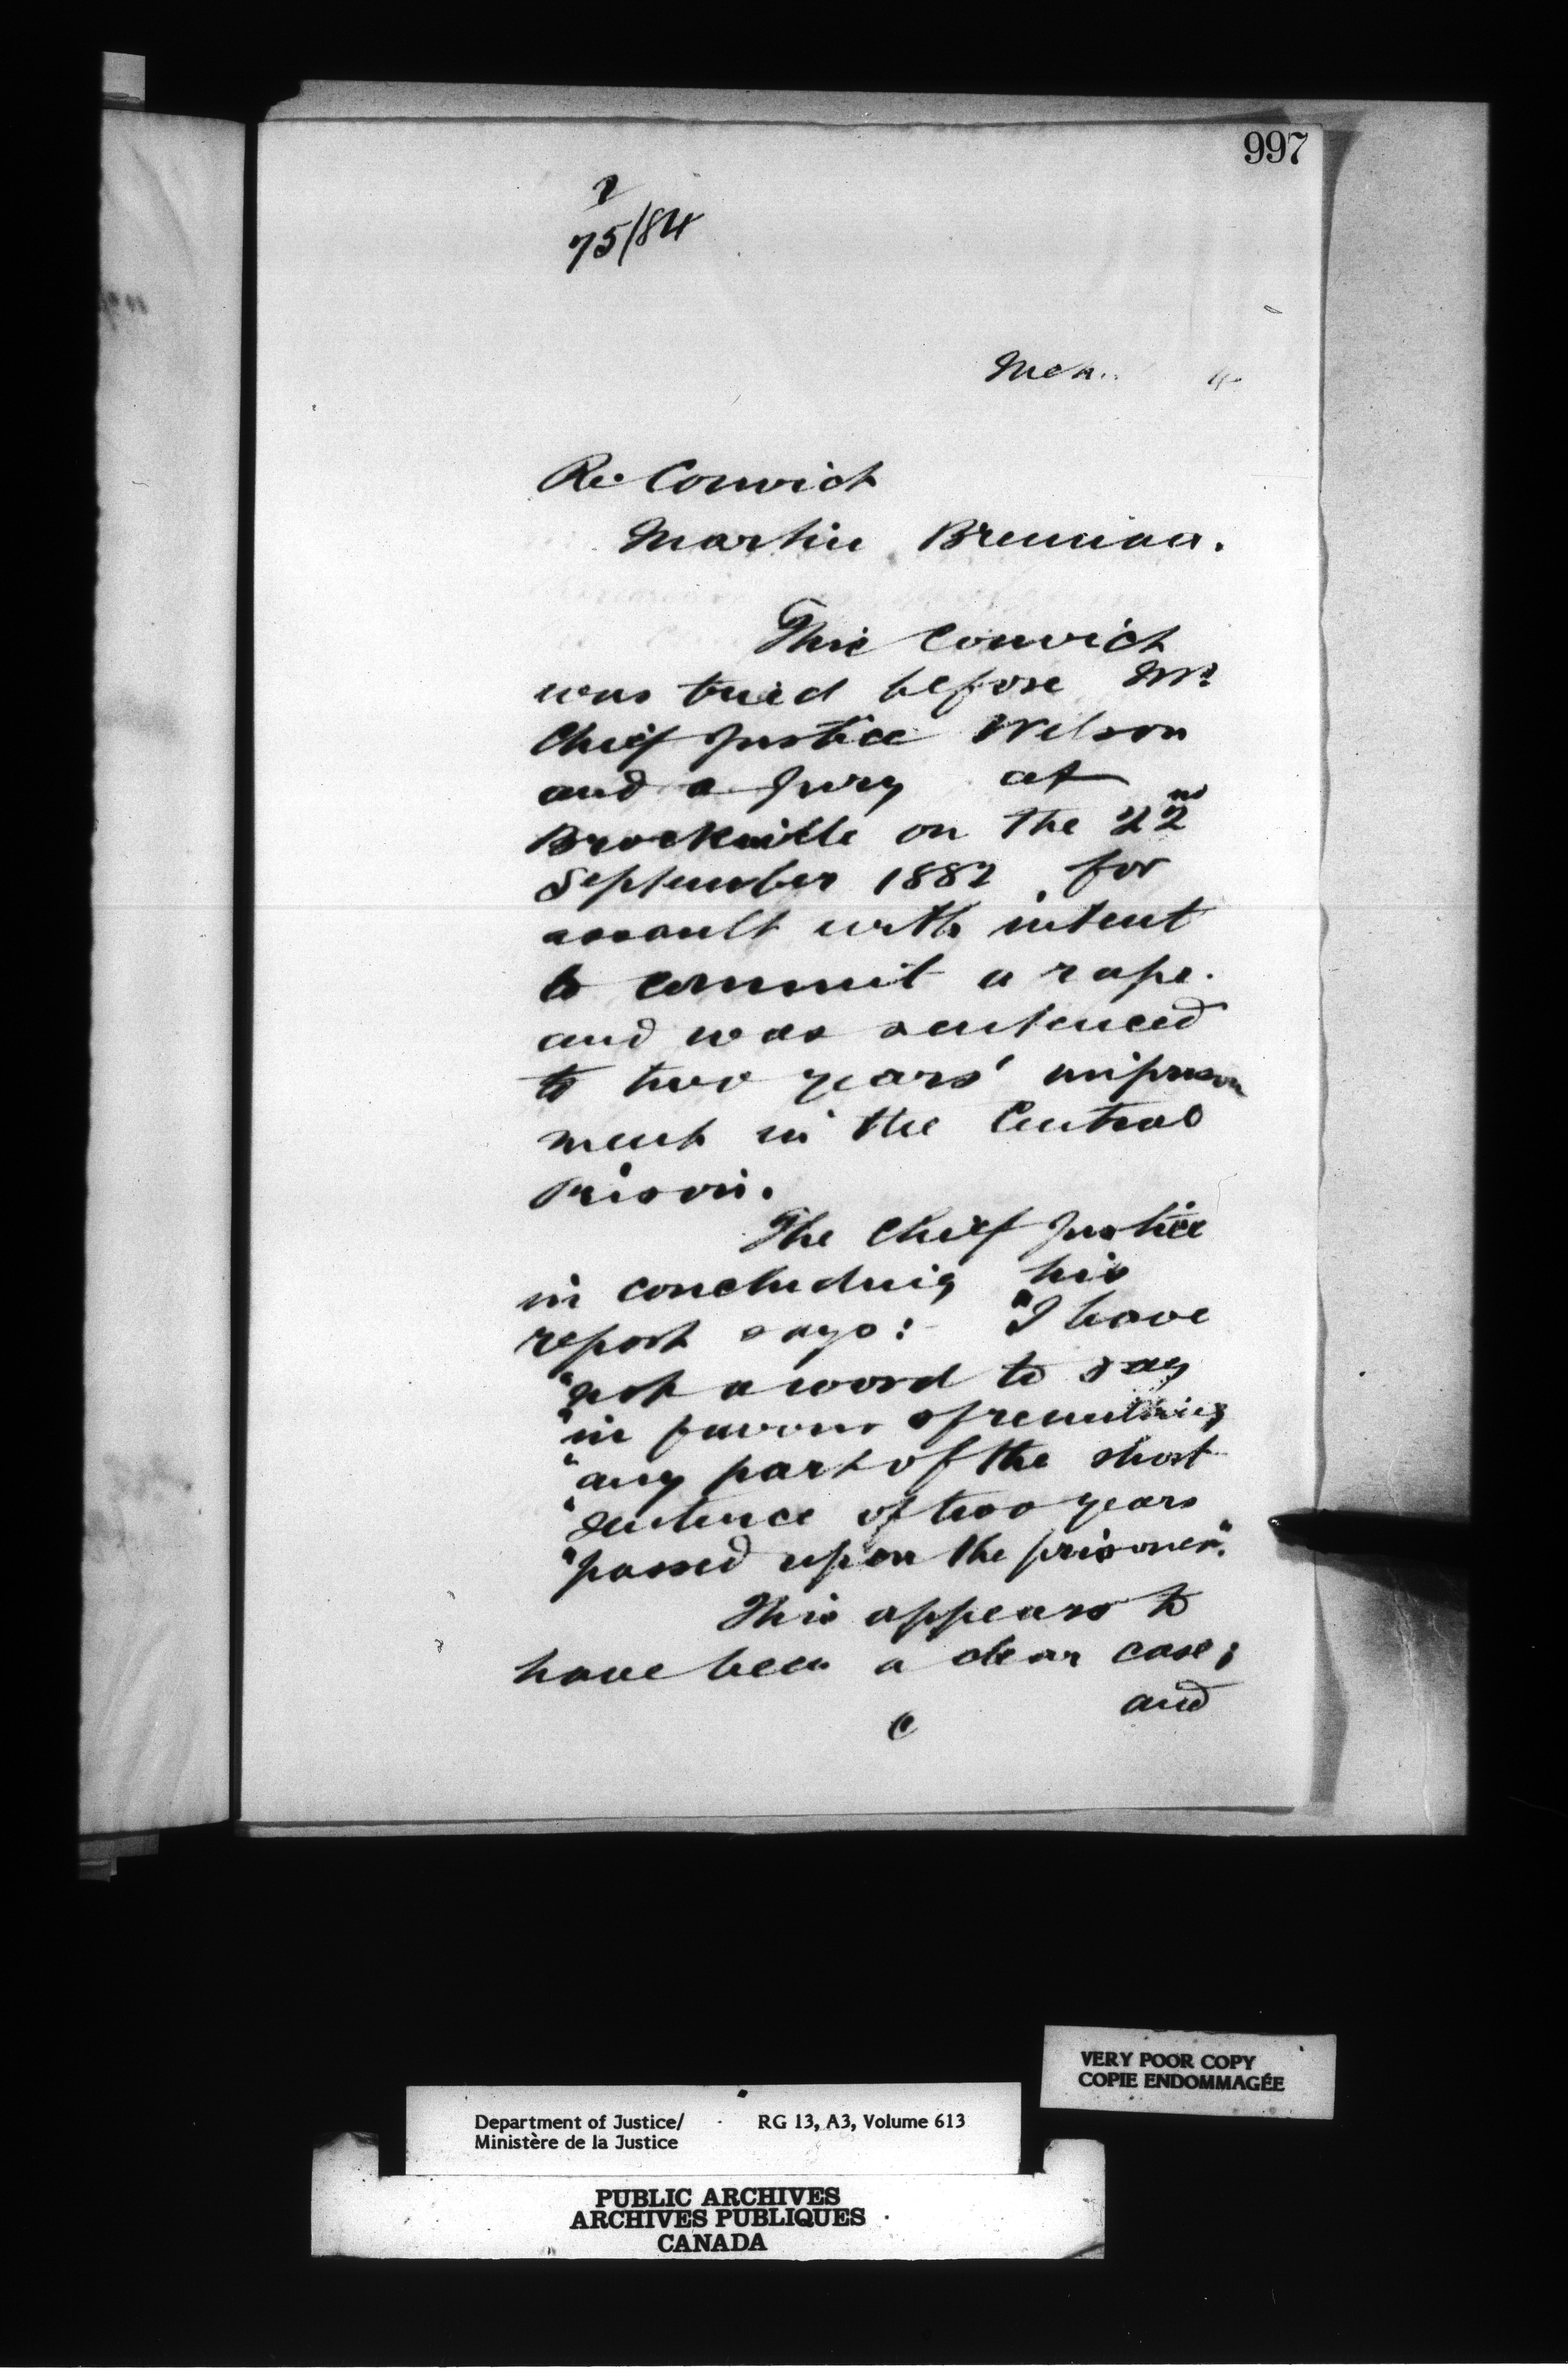 997
2
75/84
Re Convict
Martin Brennan.
This Convict
was tried before Mr.
Chief Justice Wilson
and a Jury at
Brockville on the 22nd
September 1882 for
assault with intent
to commit a rape.
and was sentenced
to two years' imprison
ment in the Central
Prison.
The Chief Justice
in concluding his
report says:- "I have
"not a word to say
"in favour of remitting
"any part of the short
"sentence of two years
"passed upon the prisoner".
This appears to
have been a clear case;
and
VERY POOR COPY
COPIE ENDOMMAGÉE
Department of Justice/ RG 13, A3, Volume 613
Ministère de la Justice
PUBLIC ARCHIVES
ARCHIVES PUBLIQUES
CANADA